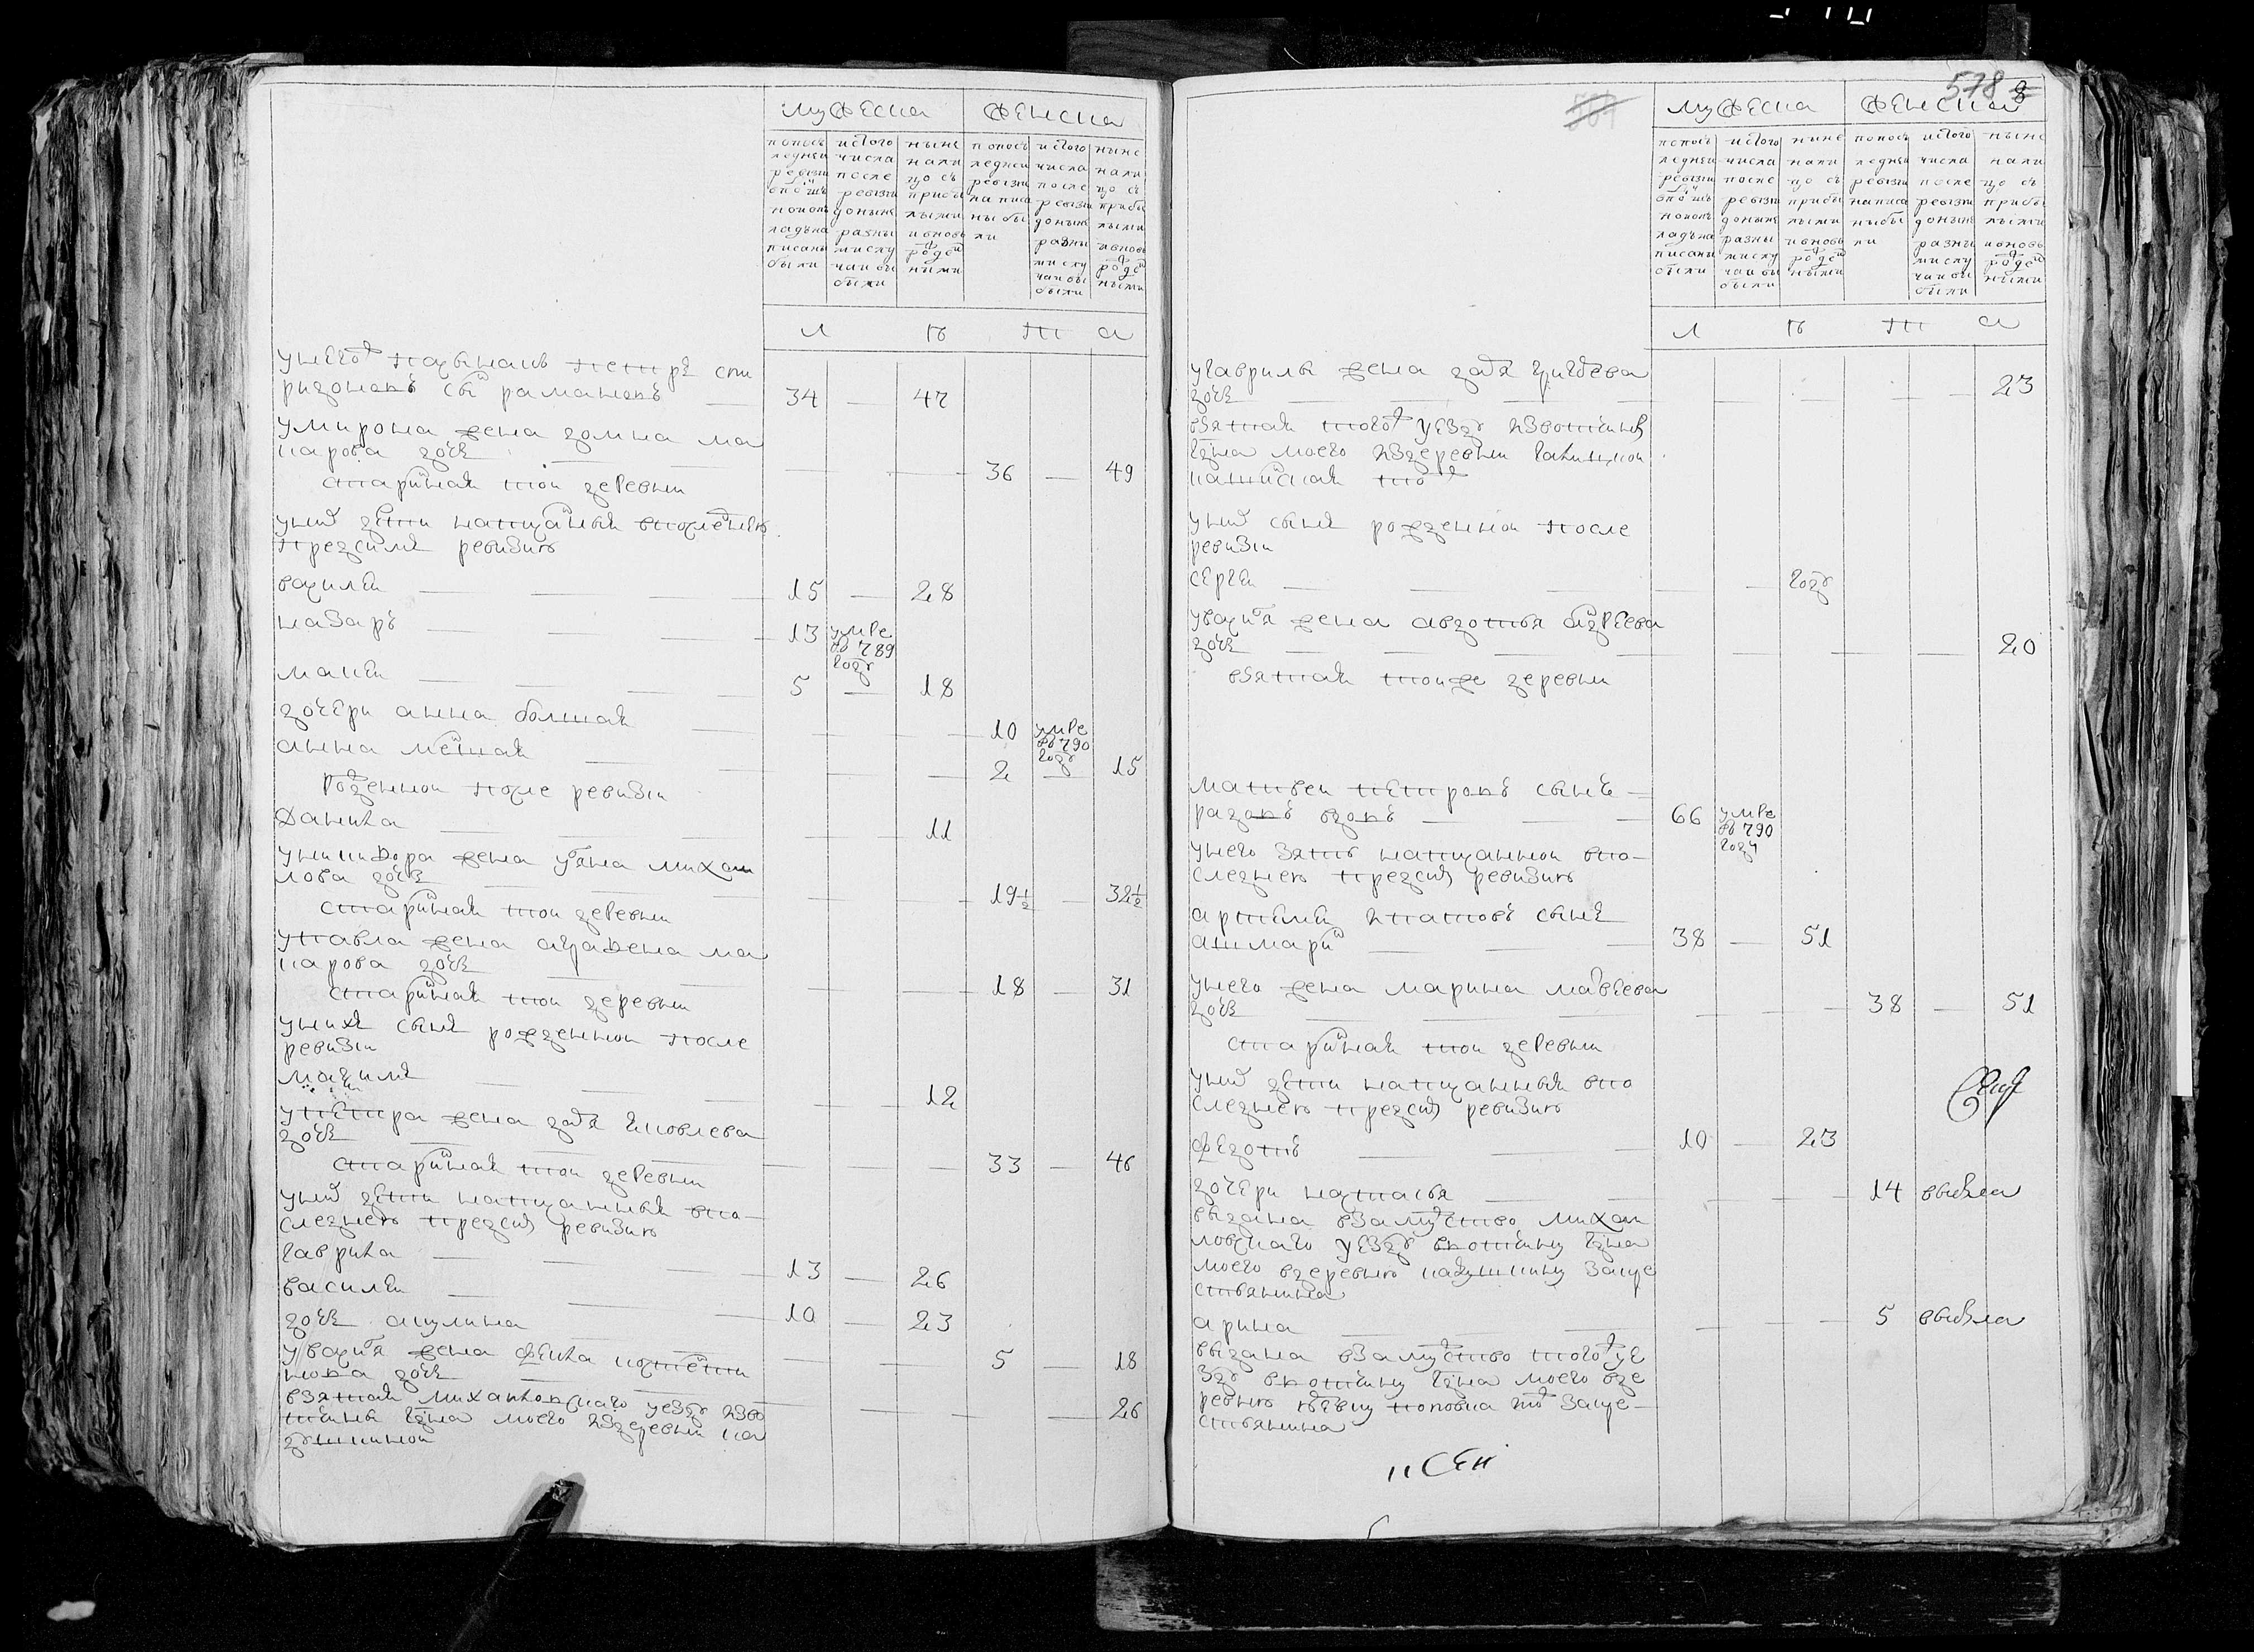 мужеска женска
попосъ ледней ревизiи вподушъ номокладъ написаны были
исtого числа после ревизiи доныне разными случаи выбыли
ныне нали цо съ прибылыми ивновь рожденными
попосъ ледней ревизiи написаны были
истого числа после ревизiи доныне разными случаи выбыли
ныне нали цо съ прибылыми ивновь рожденными
л ѣ т а
унего пасынакъ петръ спи
ридоновъ сынъ рамановъ 34 — 47
умирона жена домна ма
карова дочь 36 — 49
старинная тои деревни
унихъ дети написанныя впоследнею
предсимъ ревизию
василей 15 — 28
назаръ 13 умре въ 789 году
макей 5 — 18
дочери анна большая 10 умре въ 790 году
анна меншая 2 — 15
рожденнои после ревизiи
данила 11
уникифора жена ульяна михаи
лова дочь 19½ — 32½
старинная тои деревни
упавла жена аграфена ма
карова дочь 18 — 31
старинная тои деревни
унихъ сынъ рожденнои после
ревизiи
максимъ 12
упетра жена дарья яковлева
дочь 33 — 46
старинная тои деревни
унихъ дети написанныя впо-
следнею предсимъ ревизию
гаврила 13 — 26
василей 10 — 23
дочь акулина 5 — 18
увасилья жена фекла костенти
нова дочь 26
взятая михаиловскаго уезду изво
тчины г̃дна моего издеревни ка
душкинои
578
мужеска женска
л ѣ т а
угаврилы жена дарья григорьева
дочь 23
взятая тогожъ уезду извотчины
г̃дна моего издеревни
унихъ сынъ рожденнои после
ревизiи
сергей годъ
увасилья жена авдотья андреева
дочь 20
взятая тоиже деревни
матвеи петровъ сынъ —
разовъ вдовъ 66 умре въ 790 году
унего зять написаннои впо-
следнею предсимъ ревизию
артемей ипатовъ сынъ
ашмаринъ 38 — 51
унего жена марина матвеева
дочь 38 — 51
старинная тои деревни
унихъ дети написанныя впо
следнею предсимъ ревизию
федотъ 10 — 23
дочери настасья 14 выбыла
выдана взамужство михаи
ловскаго уезду ввотчину г̃дна
моего вдеревню кадушкину закре
стьянина
арина 5 выбыла
выдана взамужство тогожъ уе
зду ввотчину г̃дна моего вде
ревню закре-
стьянина